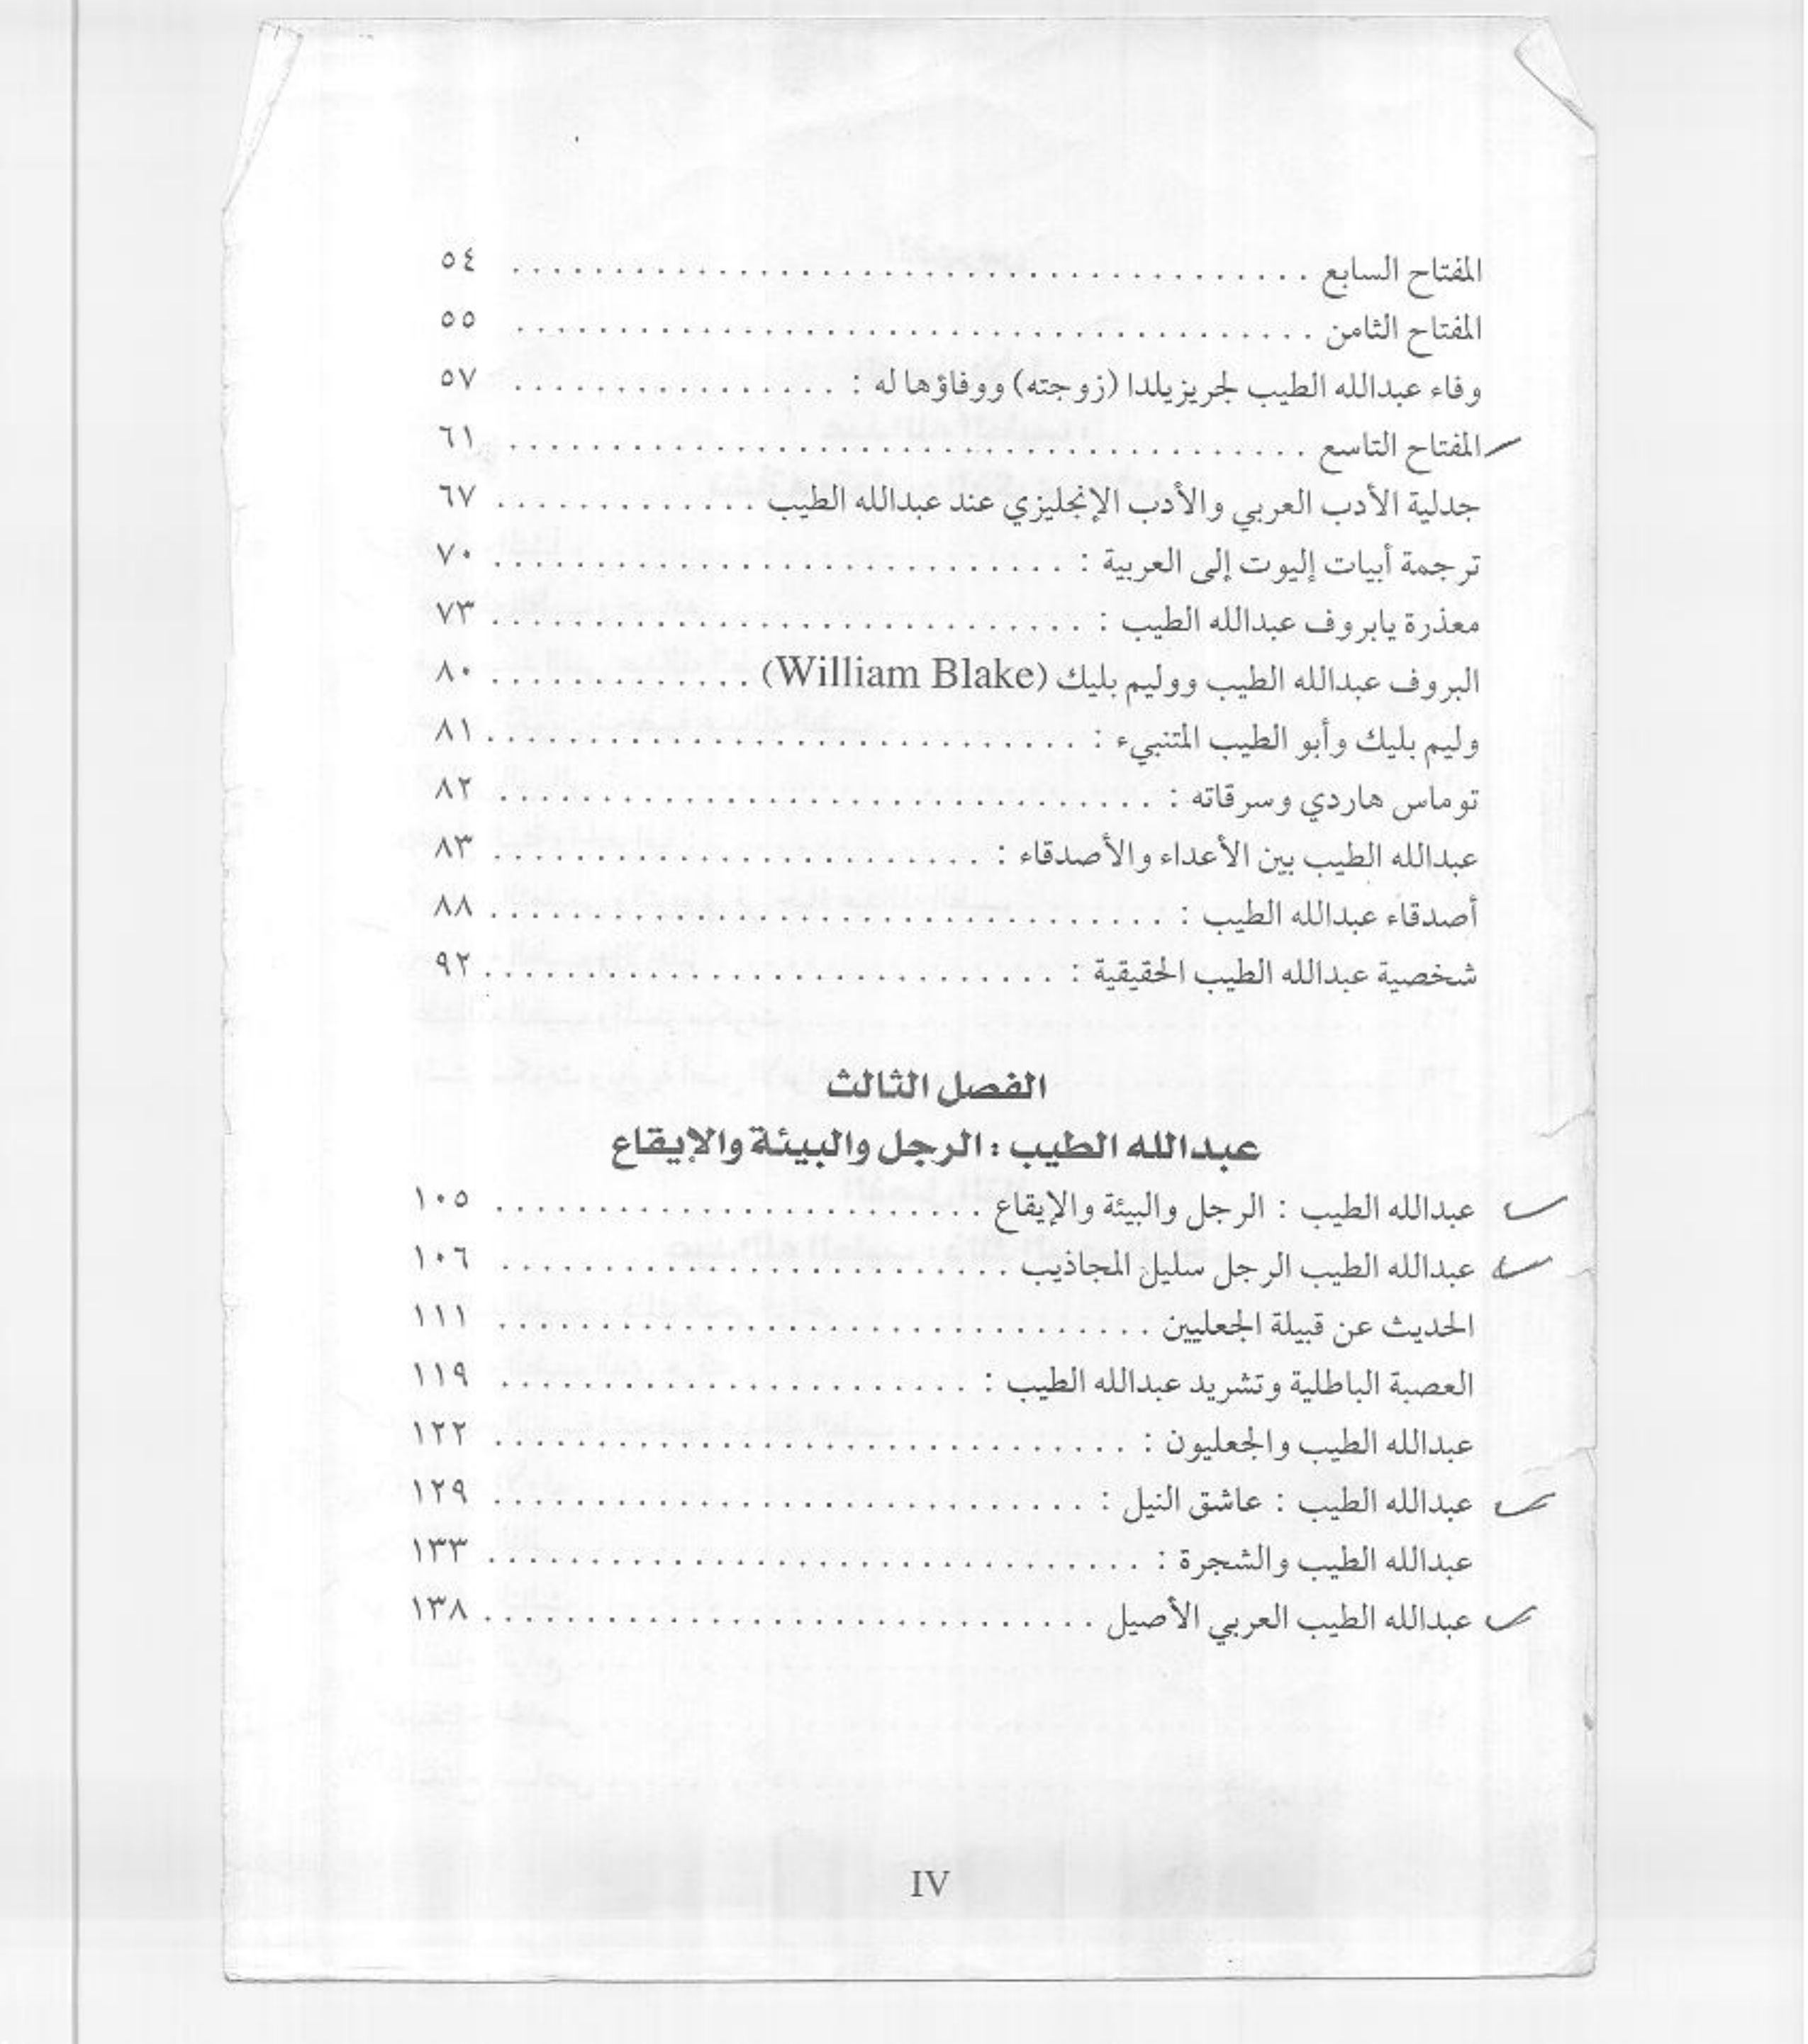 المفتاح السابع ........................................ ٥٤
المفتاح الثامن ........................................ ٥٥
وفاء عبدالله الطيب لجريزيلدا (زوجته) ووفاؤها له : ................ ٥٧
المفتاح التاسع ........................................ ٦١
جدلية الأدب العربي والأدب الإنجليزي عند عبدالله الطيب ............. ٦٧
ترجمة أبيات إليوت إلى العربية : ............................ ٧٠
معذرة يابروف عبدالله الطيب : ............................. ٧٣
البروف عبدالله الطيب ووليم بليك (William Blake) ............. ٨٠
وليم بليك وأبو الطيب المتنبيء : ............................. ٨١
توماس هاردي وسرقاته : ................................ ٨٢
عبدالله الطيب بين الأعداء والأصدقاء : ........................ ٨٣
أصدقاء عبدالله الطيب : ................................. ٨٨
شخصية عبدالله الطيب الحقيقية : ............................ ٩٢
الفصل الثالث
عبدالله الطيب : الرجل والبيئة والإيقاع
عبدالله الطيب : الرجل والبيئة والإيقاع ........................ ١٠٥
عبدالله الطيب الرجل سليل المجاذيب ......................... ١٠٦
الحديث عن قبيلة الجعليين ................................ ١١١
العصبة الباطلية وتشريد عبدالله الطيب : ....................... ١١٩
عبدالله الطيب والجعليون : ............................... ١٢٢
عبدالله الطيب : عاشق النيل : ............................. ١٢٩
عبدالله الطيب والشجرة : ................................ ١٣٣
عبدالله الطيب العربي الأصيل .............................. ١٣٨
IV